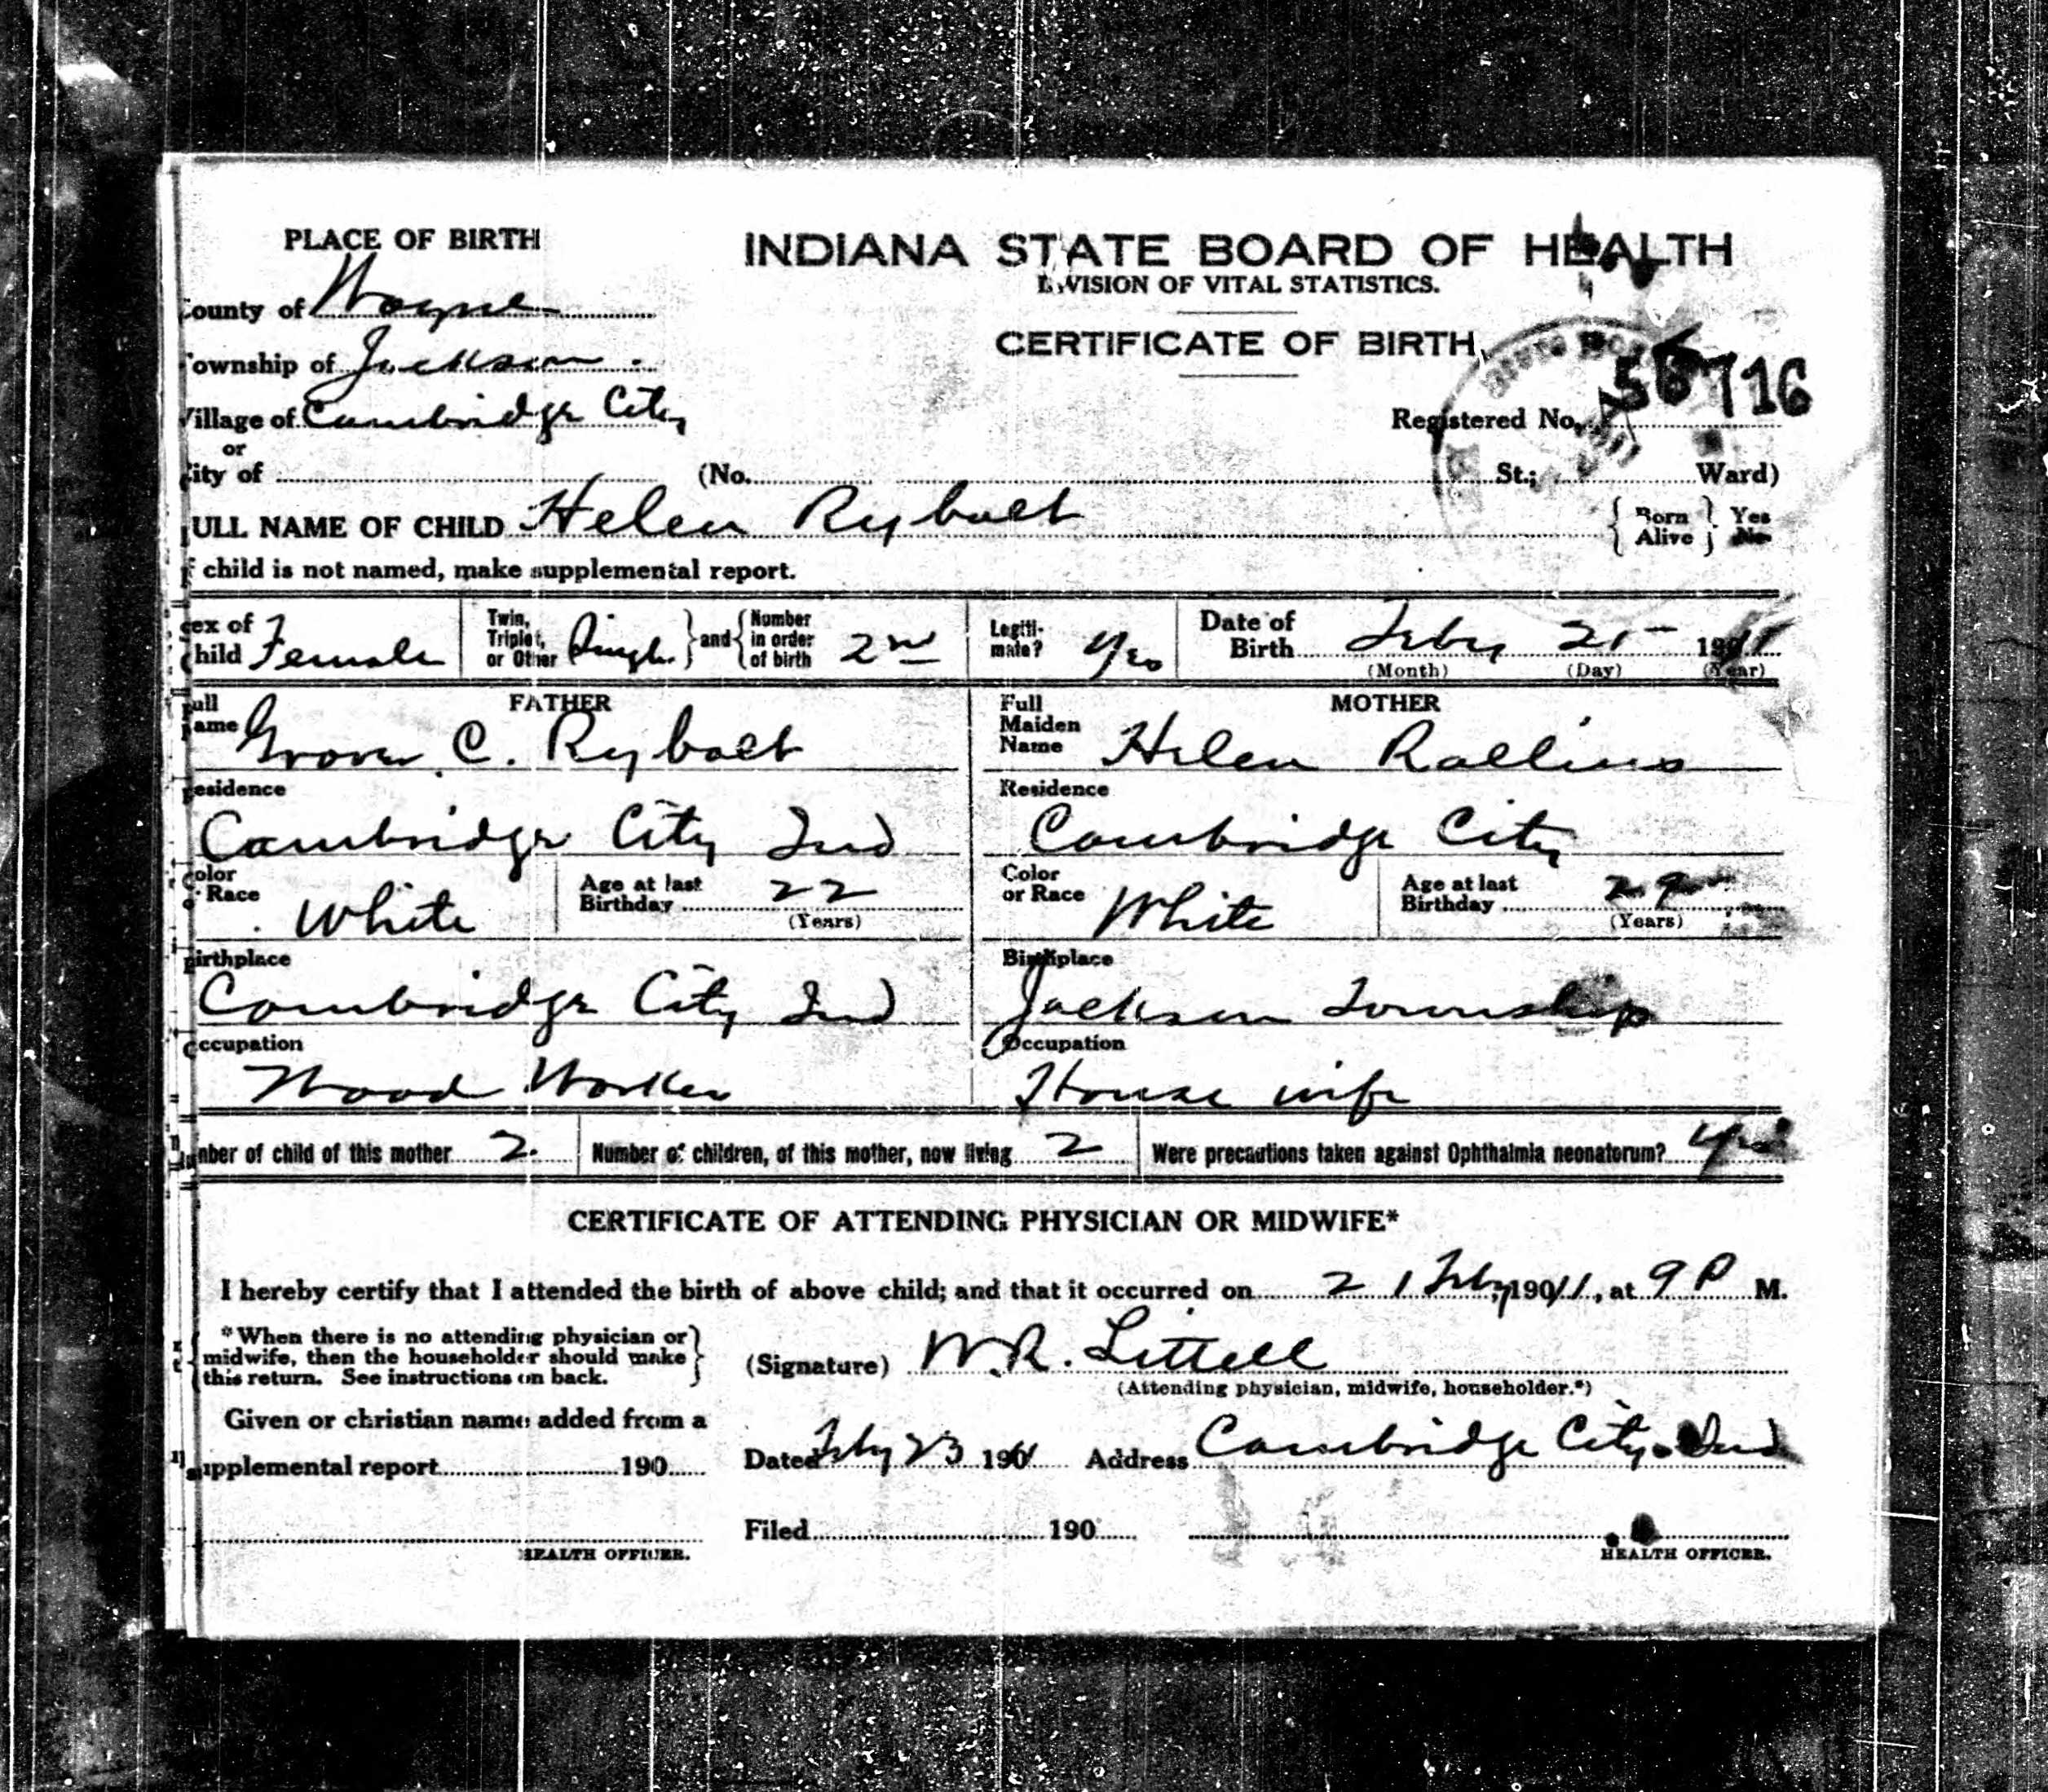 PLACE OF BIRTH
INDIANA STATE BOARD OF HEALTH
DIVISION OF VITAL STATISTICS.
County of Wayne
CERTIFICATE OF BIRTH
Township of Jackson
Village of Cambridge City
or
Registered No. 56716
City of (No. St.; Ward)
FULL NAME OF CHILD Helen Rybolt { Born Alive } Yes No
If child is not named, make supplemental report.
Sex of Child Female Twin, Triplet, or Other Single } and { Number in order of birth 2nd Legitimate? Yes Date of Birth Feby 21 1911
(Month) (Day) (Year)
FATHER MOTHER
Full Name Grover C. Rybolt Full Maiden Name Helen Rollins
Residence Residence
Cambridge City Ind Cambridge City
Color or Race White Age at last Birthday 22 (Years) Color or Race White Age at last Birthday 29 (Years)
Birthplace Birthplace
Cambridge City Ind Jackson Township
Occupation Occupation
Wood Worker House wife
Number of child of this mother 2. Number of children, of this mother, now living 2 Were precautions taken against Ophthalmia neonatorum? yes
CERTIFICATE OF ATTENDING PHYSICIAN OR MIDWIFE*
I hereby certify that I attended the birth of above child; and that it occurred on 21 Feby, 1911, at 9 P M.
{ *When there is no attending physician or midwife, then the householder should make this return. See instructions on back. }
(Signature) W.R. Littell
(Attending physician, midwife, householder.*)
Given or christian name added from a
supplemental report 190
Dated Feby 23 1911 Address Cambridge City Ind
Filed 190
HEALTH OFFICER. HEALTH OFFICER.